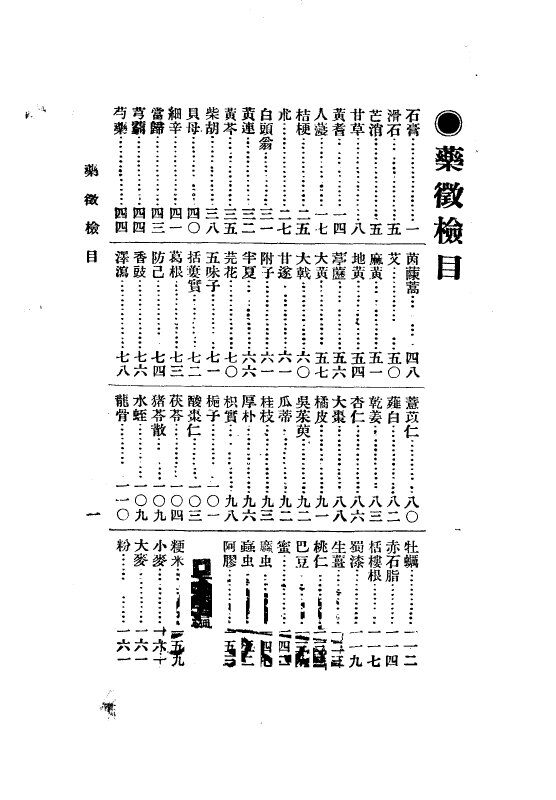 ●藥徵檢目
石膏……一
滑石……五
芒消……五
甘草……八
黃耆……一四
人蔘……一七
桔梗……二五
朮……二七
白頭翁……三一
黃連……三二
黃芩……三五
柴胡……三八
貝母……四〇
細辛……四一
當歸……四三
芎藭……四四
芍藥……四四
茵蔯蒿……四八
艾……五〇
麻黃……五一
地黃……五四
葶藶……五六
大黃……五七
大戟……六〇
甘遂……六一
附子……六一
半夏……六六
芫花……七〇
五味子……七一
括蔞實……七二
葛根……七三
防己……七四
香豉……七六
澤瀉……七八
薏苡仁……八〇
薤白……八二
乾姜……八三
杏仁……八六
大棗……八八
橘皮……九一
吳茱萸……九二
瓜蒂……九二
桂枝……九三
厚朴……九六
枳實……九八
梔子……一〇一
酸棗仁……一〇三
茯苓……一〇四
猪苓散……一〇九
水蛭……一〇九
龍骨……一一〇
牡蠣……一一二
赤石脂……一一四
栝樓根……一一七
蜀漆……一一九
生薑
桃仁
巴豆
蜜
䗪虫
蝱虫
阿膠
粳米……一五九
小麥……一六一
大麥……一六一
粉……一六一
藥徵檢目
一